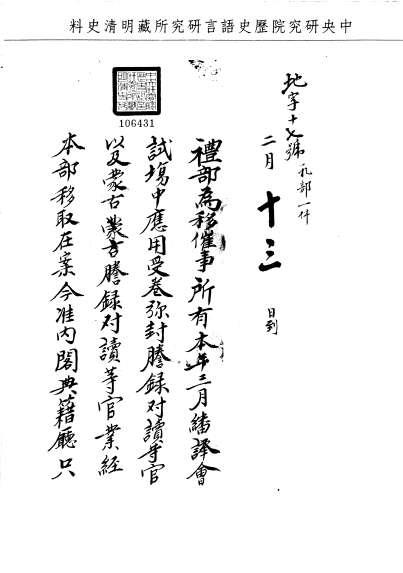 中央研究院歷史語言研究所藏明清史料
106431
地字十七號 礼部一件
二月 十三 日到
禮部為移催事所有本年三月繙譯會
試塲中應用受卷弥封謄録对讀等官
以及蒙古謄録对讀等官業經
本部移取在案今准内閣典籍廳只